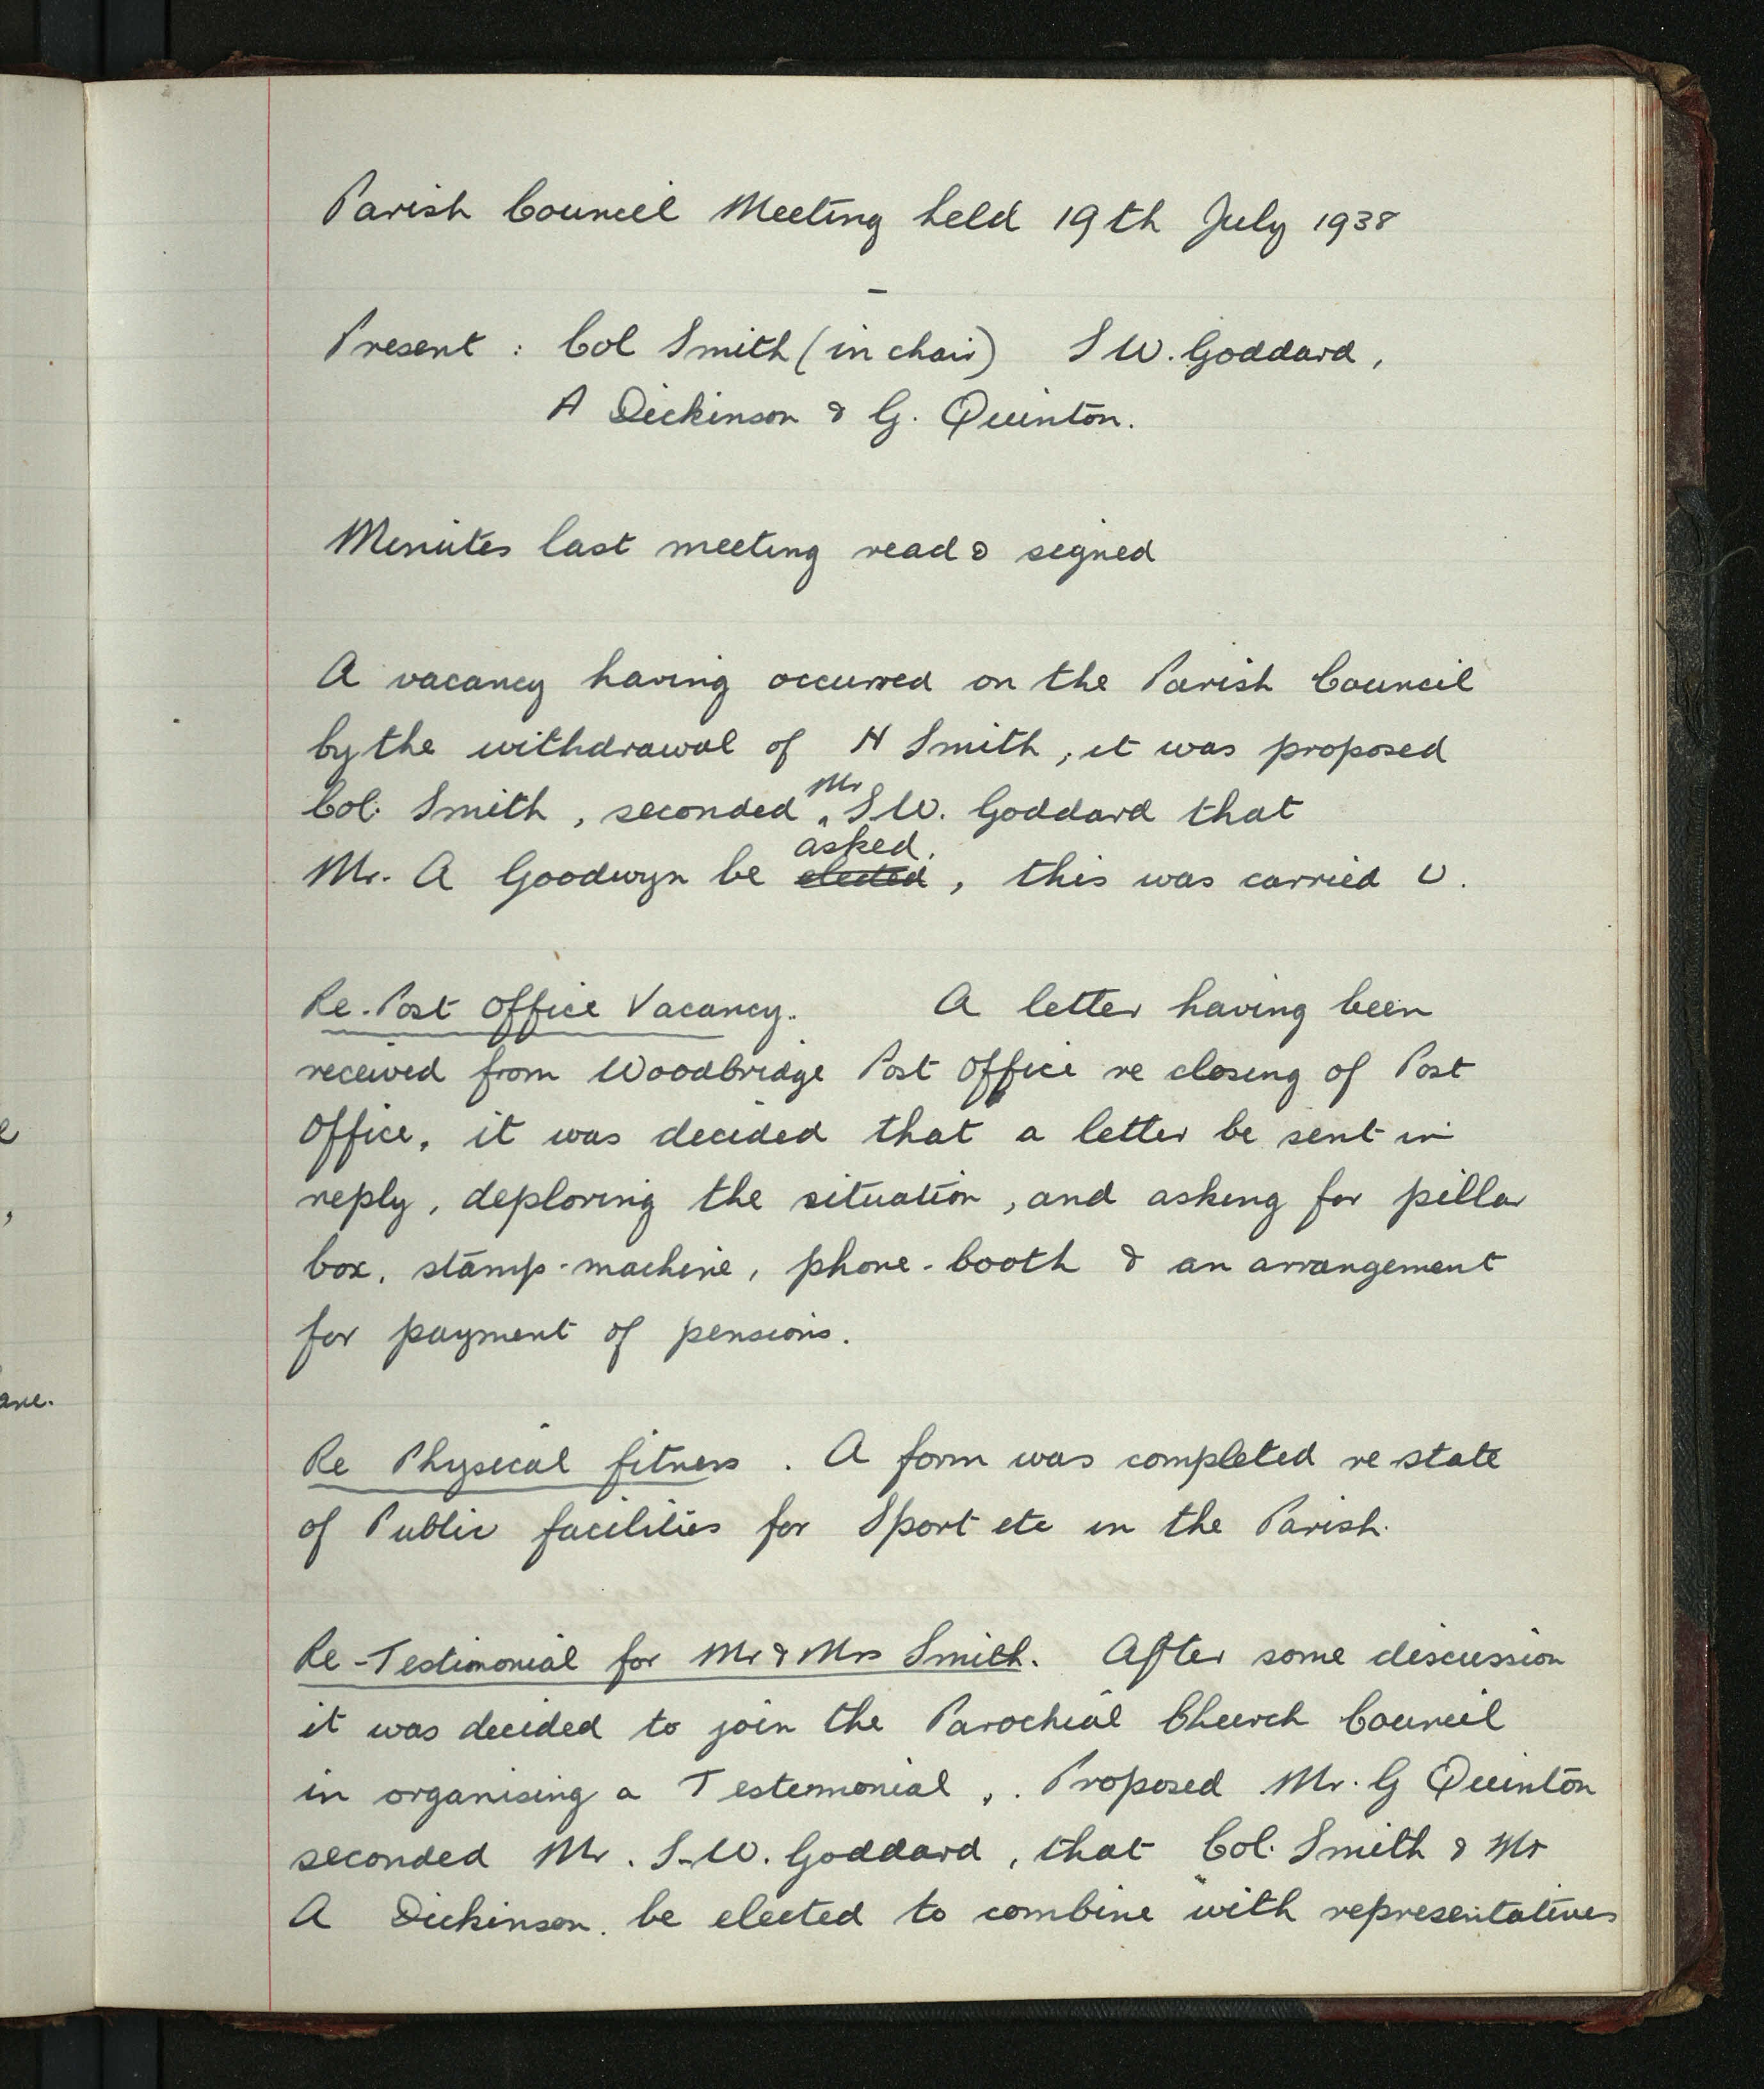 Parish Council Meeting held 19th July 1938
Present : Col Smith (in chair) S W. Goddard,
A Dickinson & G. Quinton.
Minutes last meeting read & signed
A vacancy having occurred on the Parish Council
by the withdrawal of H Smith, it was proposed
Col. Smith, seconded Mr S.W. Goddard that
asked.
Mr. A Goodwyn be elected, this was carried U.
Re. Post Office Vacancy. A letter having been
received from Woodbridge Post Office re closing of Post
Office, it was decided that a letter be sent in
reply, deploring the situation, and asking for pillar
box, stamp-machine, phone-booth & an arrangement
for payment of pensions.
Re Physical fitness. A form was completed re state
of Public facilities for Sport etc in the Parish.
Re-Testimonial for Mr & Mrs Smith. After some discussion
it was decided to join the Parochial Church Council
in organising a Testimonial,. Proposed Mr. G Quinton
seconded Mr. S.W. Goddard, that Col. Smith & Mr
A Dickinson. be elected to combine with representatives